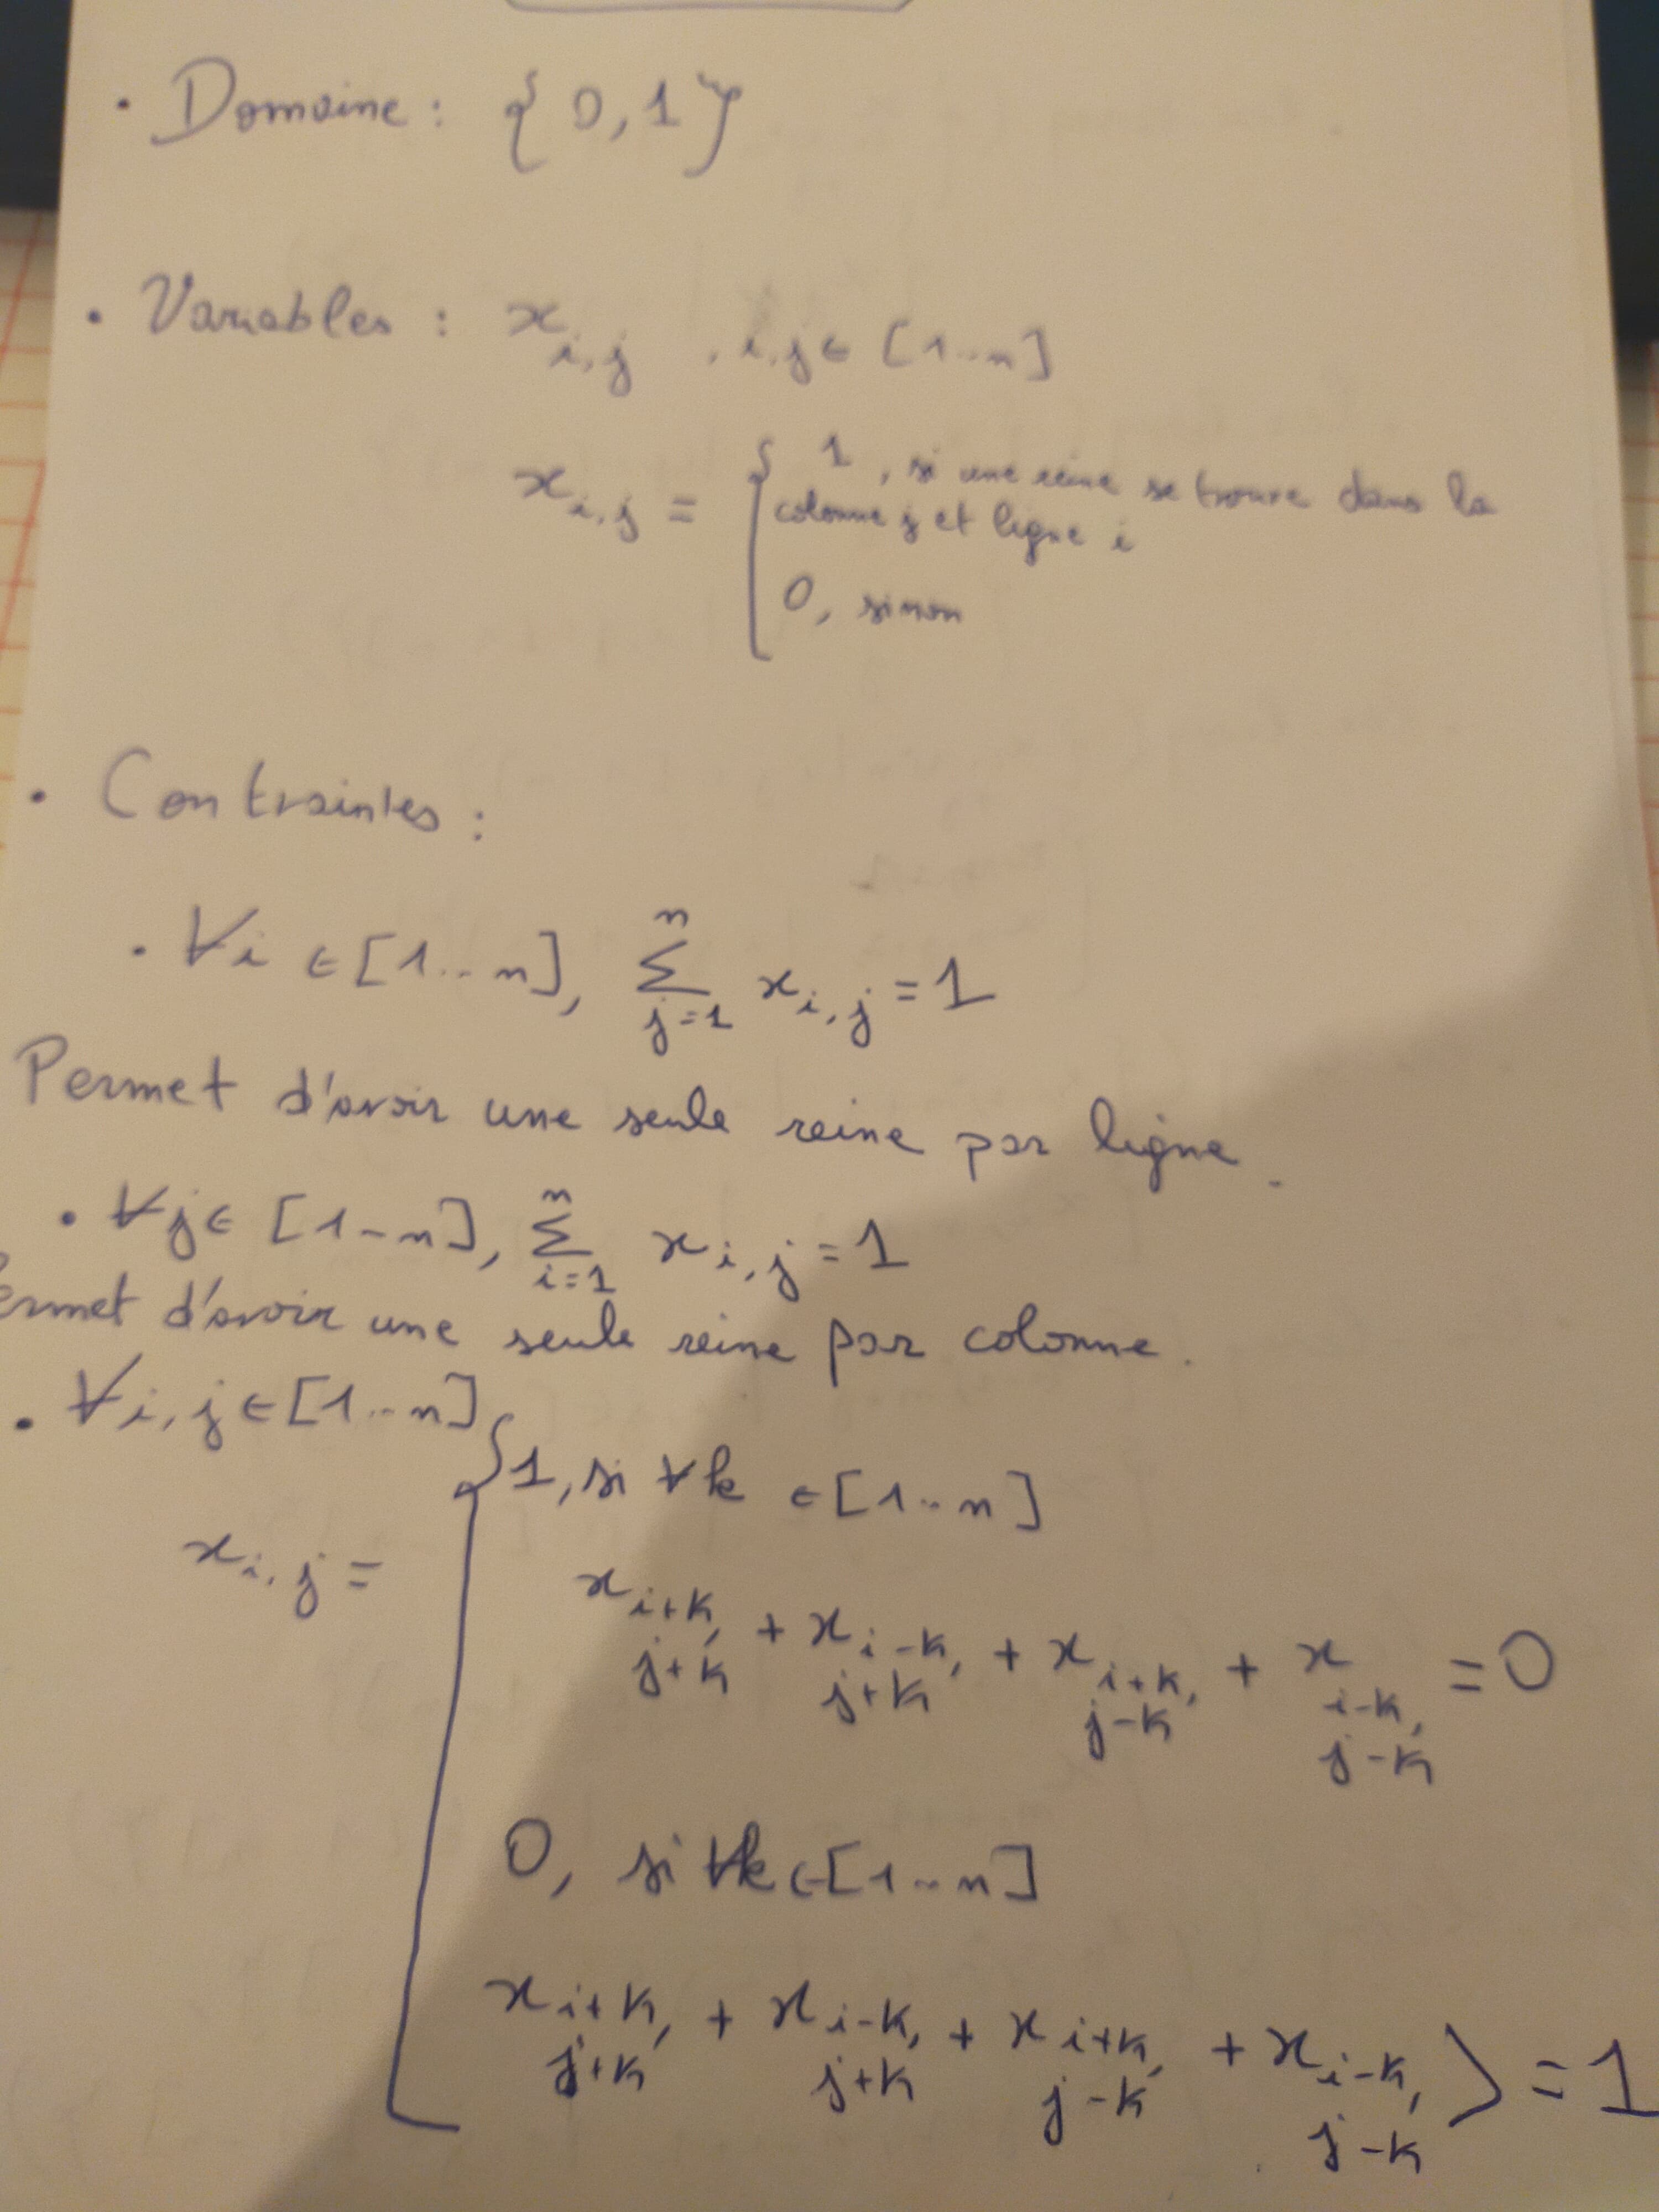 • Domaine : { 0, 1 }
• Variables : x_{i,j} , i,j ∈ [1..n]
x_{i,j} = { 1, si une reine se trouve dans la
colonne j et ligne i
0, sinon
• Contraintes :
• ∀i ∈ [1...n], ∑_{j=1}^{n} x_{i,j} = 1
Permet d'avoir une seule reine par ligne.
• ∀j ∈ [1-n], ∑_{i=1}^{n} x_{i,j} = 1
ermet d'avoir une seule reine par colonne.
• ∀i,j ∈ [1..n]
x_{i,j} = { 1, si ∀k ∈ [1..n]
x_{i+k, j+k} + x_{i-k, j+k} + x_{i+k, j-k} + x_{i-k, j-k} = 0
0, si ∀k ∈ [1..n]
x_{i+k, j+k} + x_{i-k, j+k} + x_{i+k, j-k} + x_{i-k, j-k} >= 1